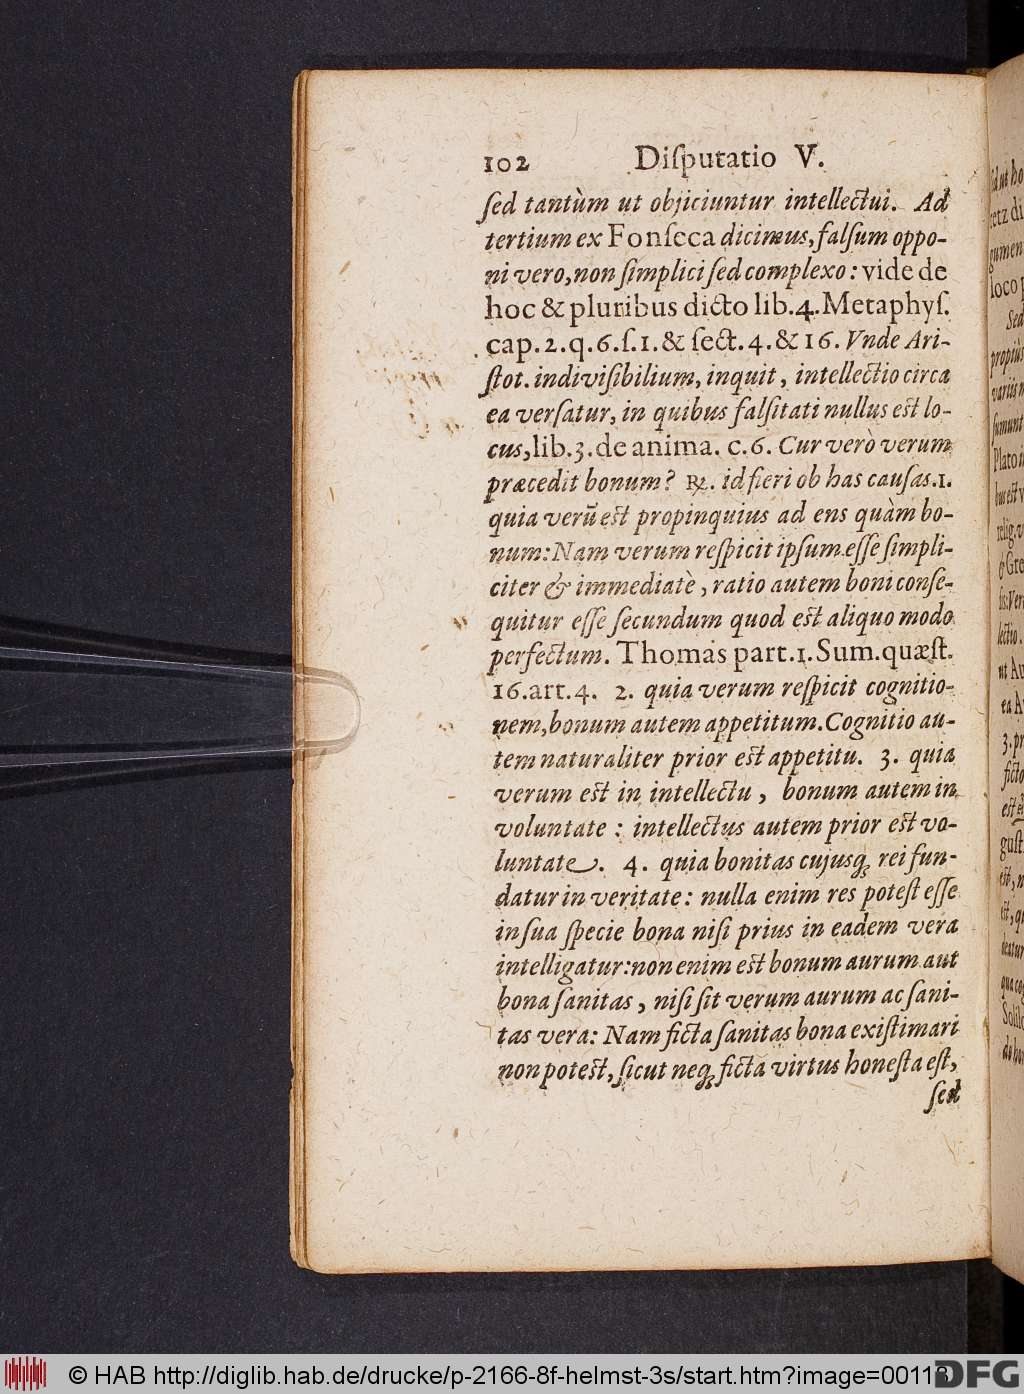 102 Diſputatio V.
ſed tantùm ut objiciuntur intellectui. Ad
tertium ex Fonſeca dicimus, falſum oppo-
ni vero, non ſimplici ſed complexo: vide de
hoc & pluribus dicto lib. 4. Metaphyſ.
cap. 2. q. 6. ſ. 1. & ſect. 4. & 16. Vnde Ari-
ſtot. indiviſibilium, inquit, intellectio circa
ea verſatur, in quibus falſitati nullus est lo-
cus, lib. 3. de anima. c. 6. Cur verò verum
præcedit bonum? ℞. id fieri ob has cauſas. 1.
quia verũ est propinquius ad ens quàm bo-
num: Nam verum reſpicit ipſum eſſe ſimpli-
citer & immediatè, ratio autem boni conſe-
quitur eſſe ſecundum quod est aliquo modo
perfectum. Thomas part. 1. Sum. quæſt.
16. art. 4. 2. quia verum reſpicit cognitio-
nem, bonum autem appetitum. Cognitio au-
tem naturaliter prior est appetitu. 3. quia
verum est in intellectu, bonum autem in
voluntate: intellectus autem prior est vo-
luntate. 4. quia bonitas cujusq; rei fun-
datur in veritate: nulla enim res poteſt eſſe
in ſua ſpecie bona niſi prius in eadem vera
intelligatur: non enim est bonum aurum aut
bona ſanitas, niſi ſit verum aurum ac ſani-
tas vera: Nam ficta ſanitas bona exiſtimari
non potest, ſicut neq; ficta virtus honeſta eſt,
ſed
© HAB http://diglib.hab.de/drucke/p-2166-8f-helmst-3s/start.htm?image=00118
DFG